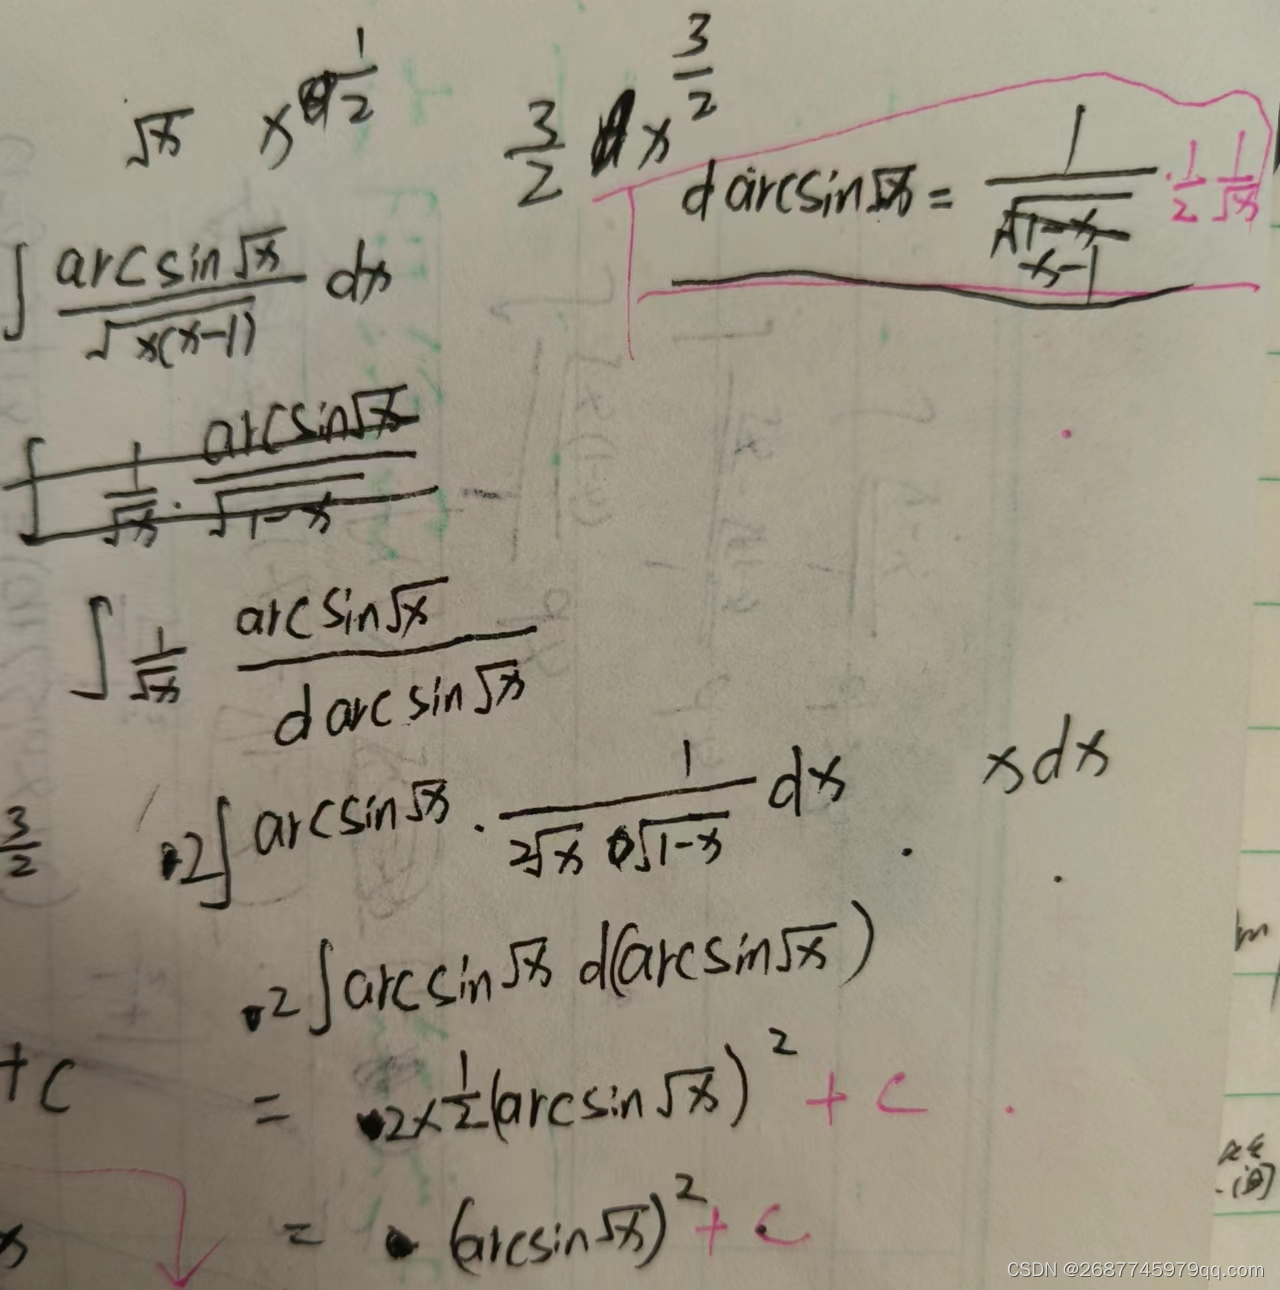 √x x^{1/2} 3/2 x^{3/2}
d arcsin√x = 1/√(1-x) · 1/2 1/√x
x-1
∫ arcsin√x / √(x(x-1)) dx
∫ 1/√x · arcsin√x / √(1-x)
∫ 1/√x arcsin√x / d arcsin√x
2∫ arcsin√x · 1/(2√x √(1-x)) dx
x dx
3/2
2∫ arcsin√x d(arcsin√x)
m
+C
= 2×1/2 (arcsin√x)² + C
= (arcsin√x)² + C
x
CSDN @2687745979qq.com